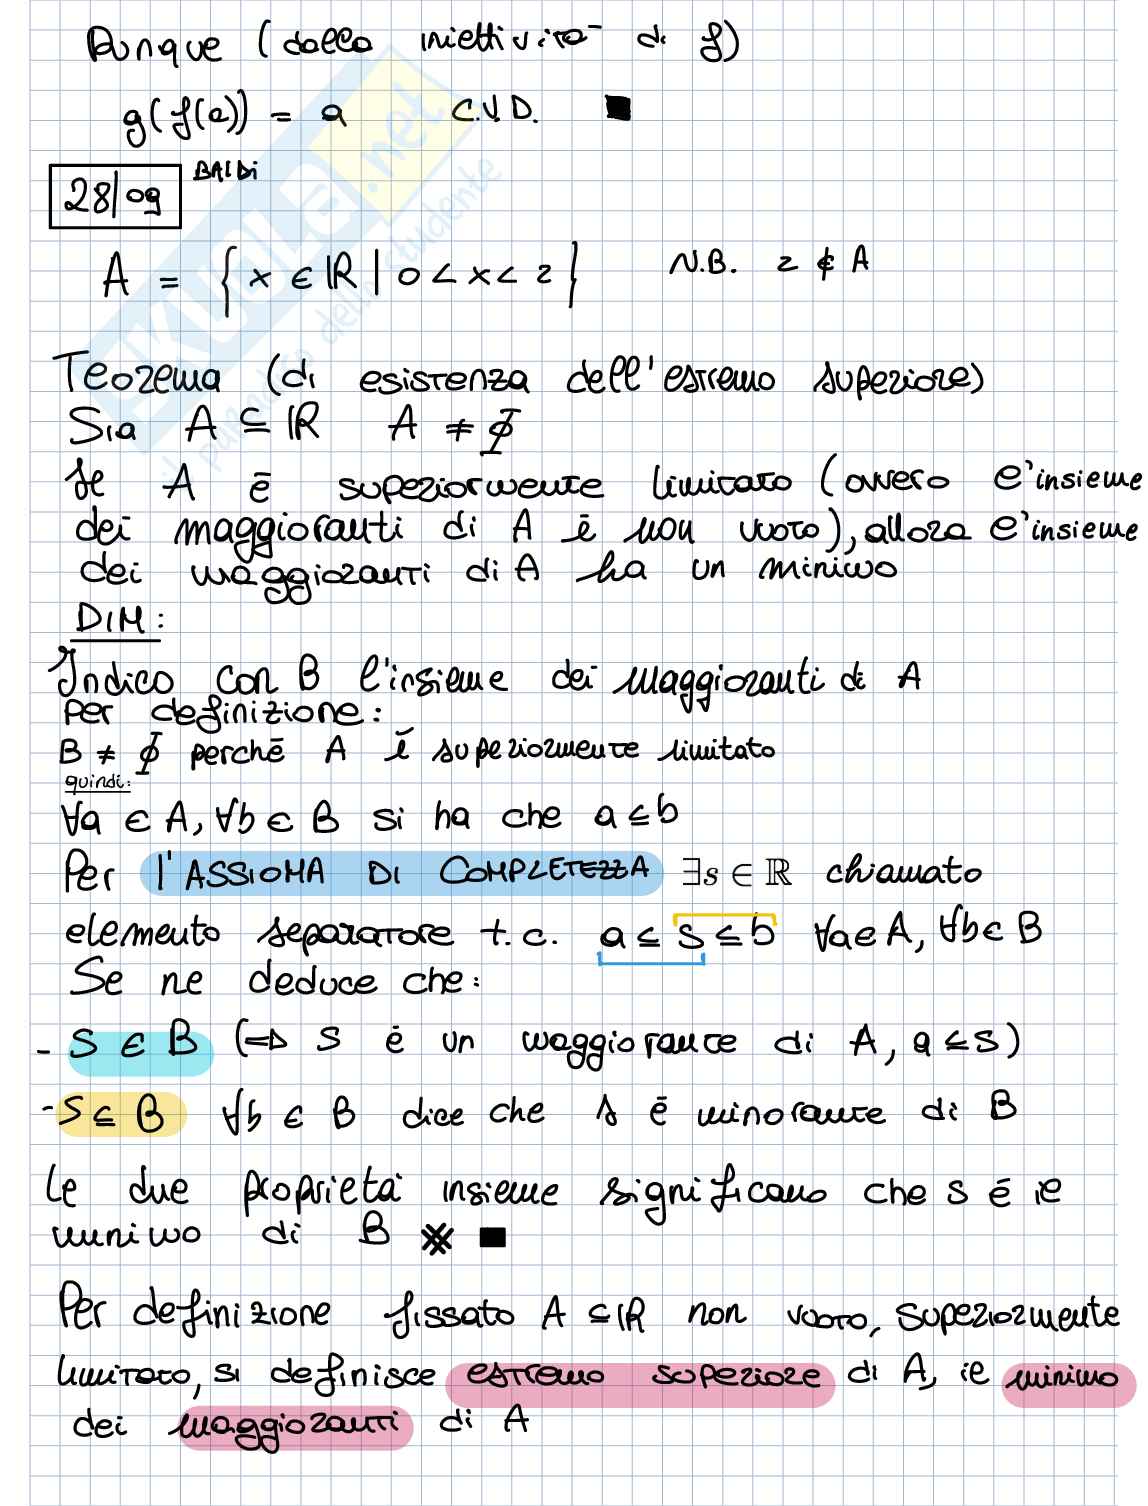 Dunque (dalla iniettività di f)
g(f(a)) = a C.V.D. ■
28/09 BALDI
A = { x ∈ ℝ | 0 < x < 2 } N.B. 2 ∉ A
Teorema (di esistenza dell'estremo superiore)
Sia A ⊆ ℝ A ≠ ∅
Se A è superiormente limitato (ovvero l'insieme
dei maggioranti di A è non vuoto), allora l'insieme
dei maggioranti di A ha un minimo
DIM:
Indico con B l'insieme dei maggioranti di A
Per definizione:
B ≠ ∅ perché A è superiormente limitato
quindi:
∀a ∈ A, ∀b ∈ B si ha che a ≤ b
Per l'ASSIOMA DI COMPLETEZZA ∃s ∈ ℝ chiamato
elemento separatore t.c. a ≤ s ≤ b ∀a ∈ A, ∀b ∈ B
Se ne deduce che:
- S ∈ B (⇒ S è un maggiorante di A, a ≤ s)
- S ≤ B ∀b ∈ B dice che s è minorante di B
Le due proprietà insieme significano che s è il
minimo di B ※ ■
Per definizione fissato A ⊆ ℝ non vuoto, superiormente
limitato, si definisce estremo superiore di A, il minimo
dei maggioranti di A
SKUOLA.net
il paradiso dello studente